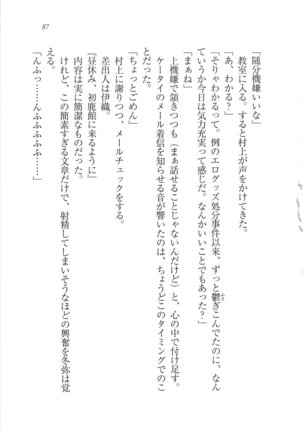 87
「随分機嫌いいな」
教室に入る。すると村上が声をかけてきた。
「あ、わかる？」
「そりゃわかるって。例のエログッズ処分事件以来、ずっと鬱ぎこんでたのに、なん
ていうか今日は気力充実って感じだ。なんかいいことでもあった？」
「まぁね」
上機嫌で頷きつつも（まぁ話せることじゃないんだけど）と、心の中で付け足す。
ケータイのメール着信を知らせる音が響いたのは、ちょうどこのタイミングでのこ
とだった。
「ちょっとごめん」
村上に謝りつつ、メールチェックをする。
差出人は伊織。
『昼休み、初鹿館に来るように』
内容は実に簡潔なものだった。
けれど、この簡素すぎる文章だけで、射精してしまいそうなほどの興奮を冬弥は覚
える。
「んふっ……んふふふふふ……」